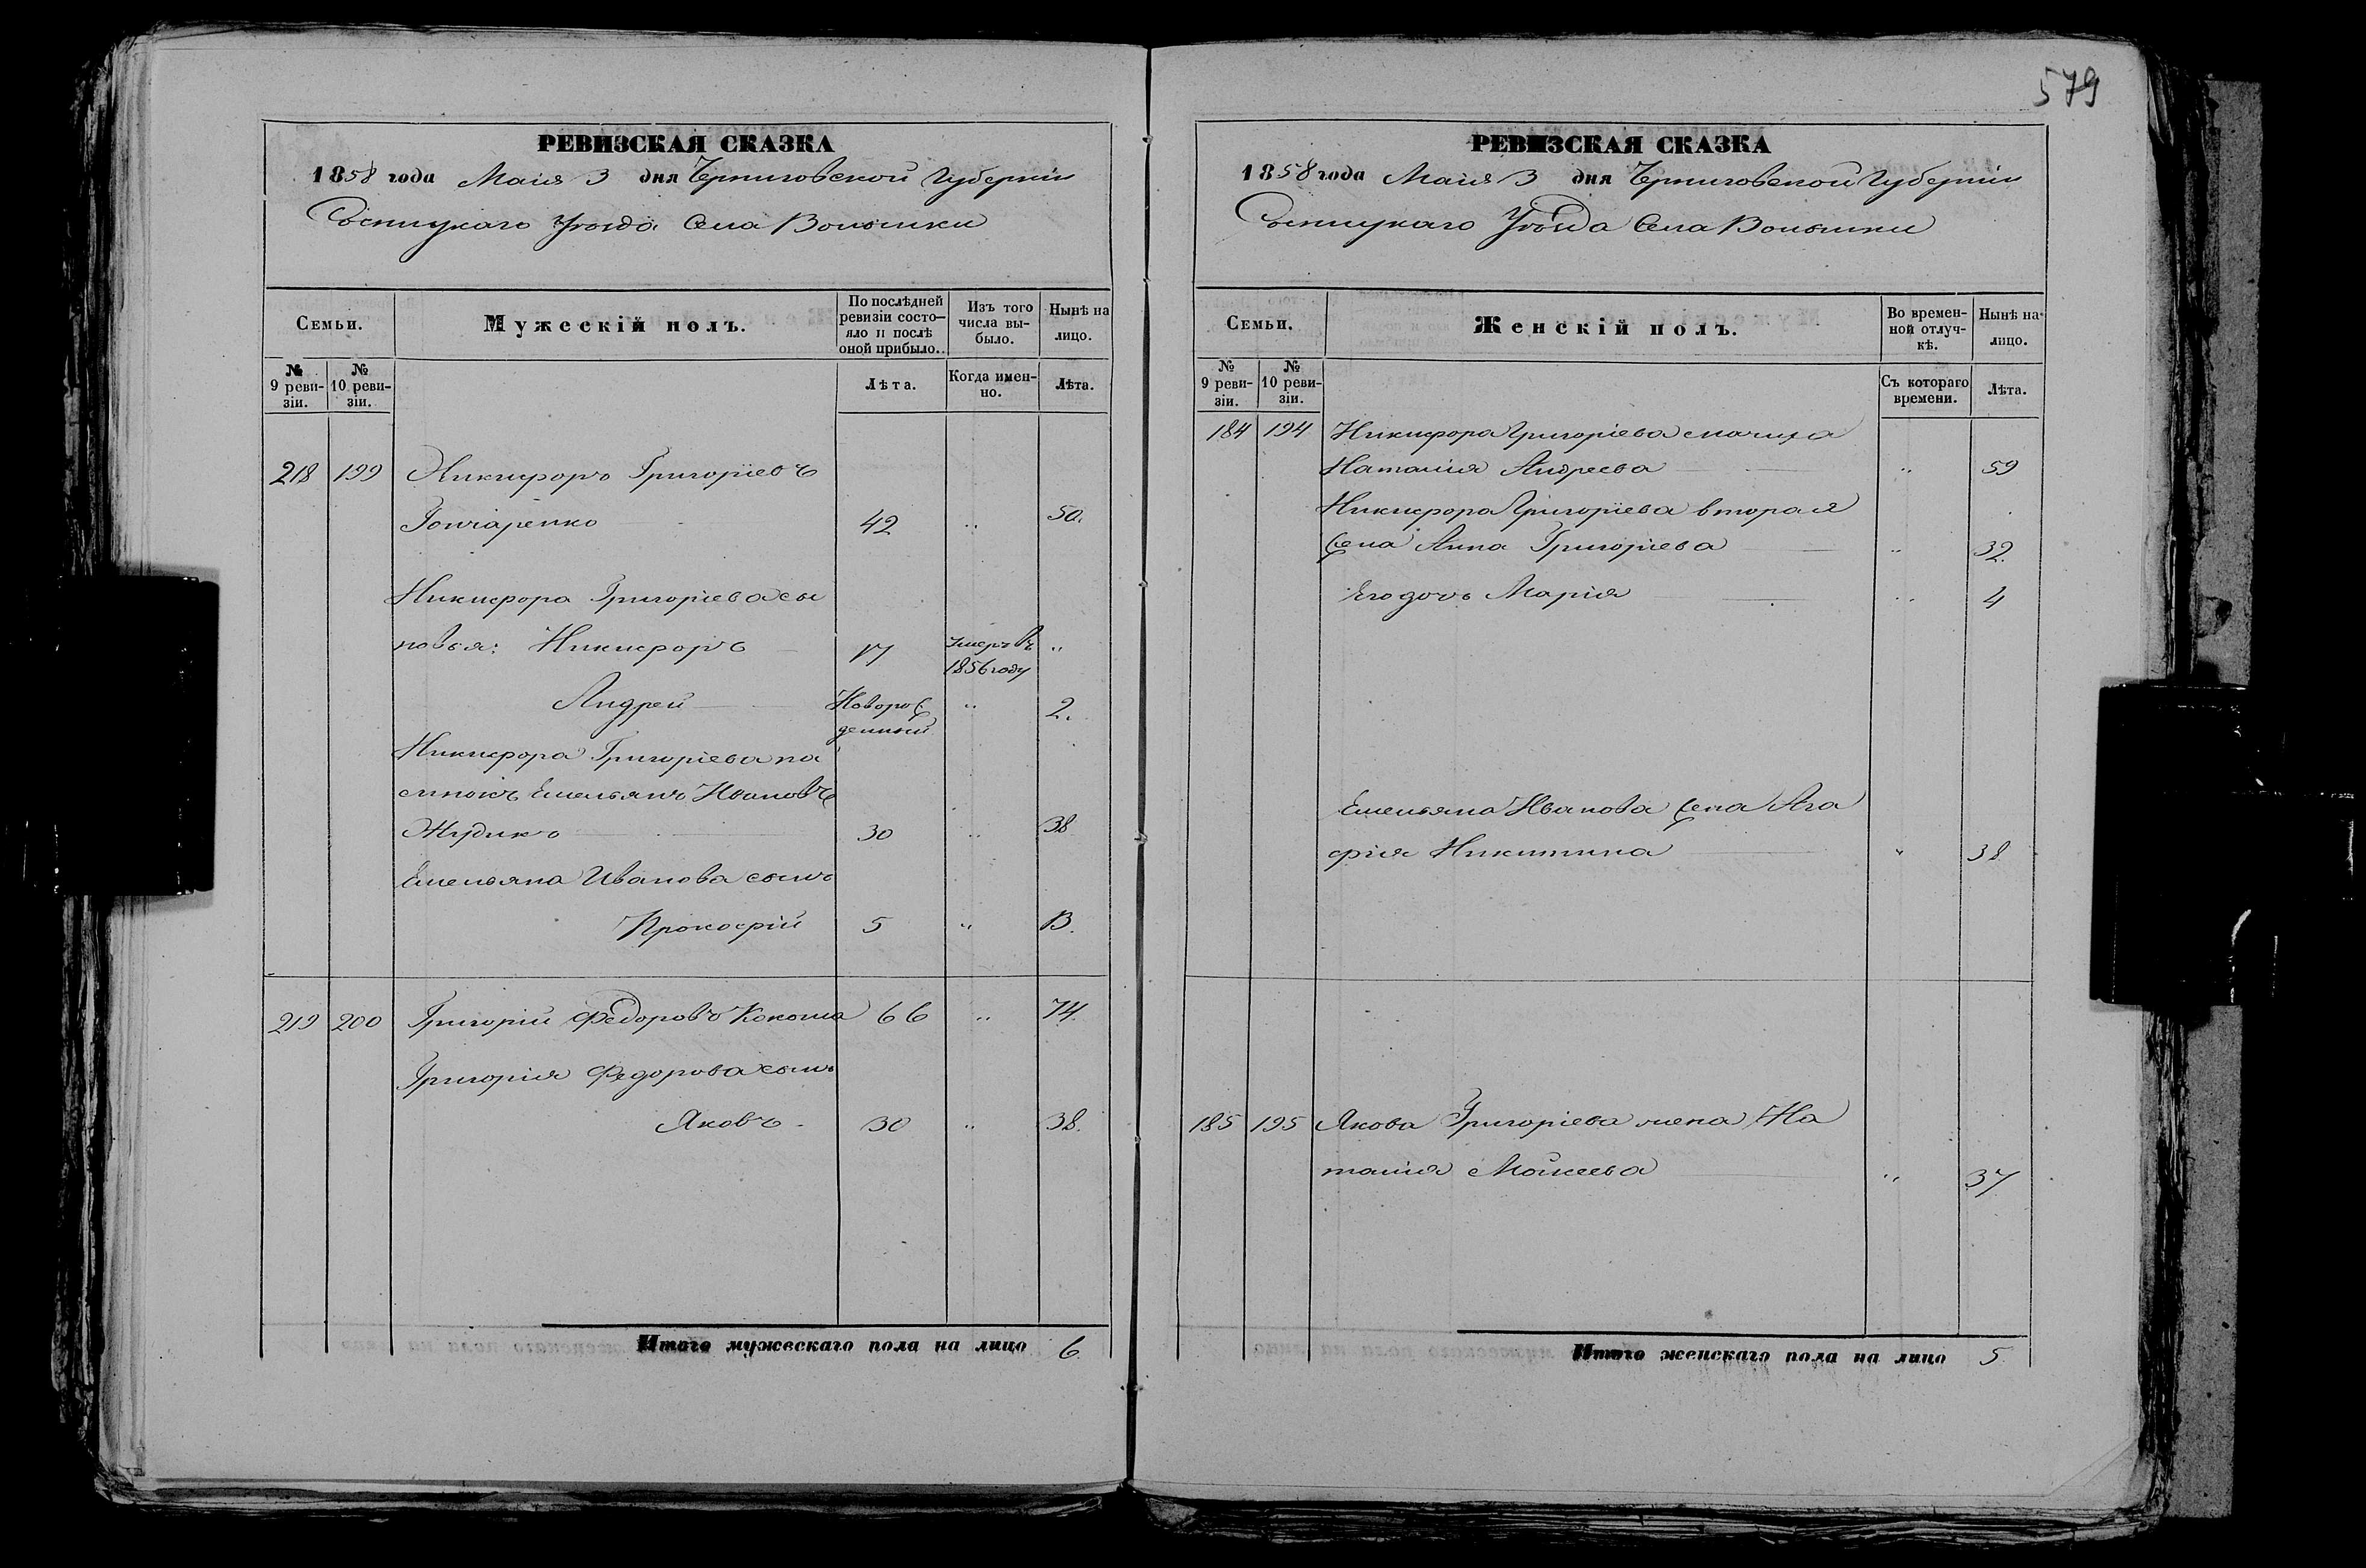 579
РЕВИЗСКАЯ СКАЗКА
1858 года Маія 3 дня Черниговской Губерніи
Сосницкаго Уѣзда Села Волынки
Семьи.
Мужескій полъ.
По послѣдней ревизіи состо-
яло и послѣ
оной прибыло.
Изъ того
числа вы-
было.
Нынѣ на
лицо.
№
9 реви-
зіи.
№
10 реви-
зіи.
Лѣта.
Когда имен-
но.
Лѣта.
218 199 Никифоръ Григоріевъ
Гончаренко 42 „ 50.
Никифора Григоріева сы
новья: Никифоръ 17 умеръ въ „
1856 году
Андрей Новорож „ 2.
денный
Никифора Григоріева па
сынокъ Емельянъ Ивановъ
Жудикъ 30 „ 38
Емельяна Иванова сынъ
Прокофій 5 „ 13.
219 200 Григорій Федоровъ Кокоша 66 „ 74.
Григорія Федорова сынъ
Яковъ 30 „ 38.
Итого мужескаго пола на лицо 6.
РЕВИЗСКАЯ СКАЗКА
1858 года Маія 3 дня Черниговской Губерніи
Сосницкаго Уѣзда Села Волынки
Семьи.
Женскій полъ.
Во времен-
ной отлуч-
кѣ.
Нынѣ на-
лицо.
№
9 реви-
зіи.
№
10 реви-
зіи.
Съ котораго
времени.
Лѣта.
184 194 Никифора Григоріева мачиха
Наталія Андреева „ 59
Никифора Григоріева вторая
жена Анна Григоріева „ 32.
Его дочь Марія „ 4
Емельяна Иванова жена Ага
фія Никитина „ 38
185 195 Якова Григоріева жена На
талія Моисеева „ 37
Итого женскаго пола на лицо 5.